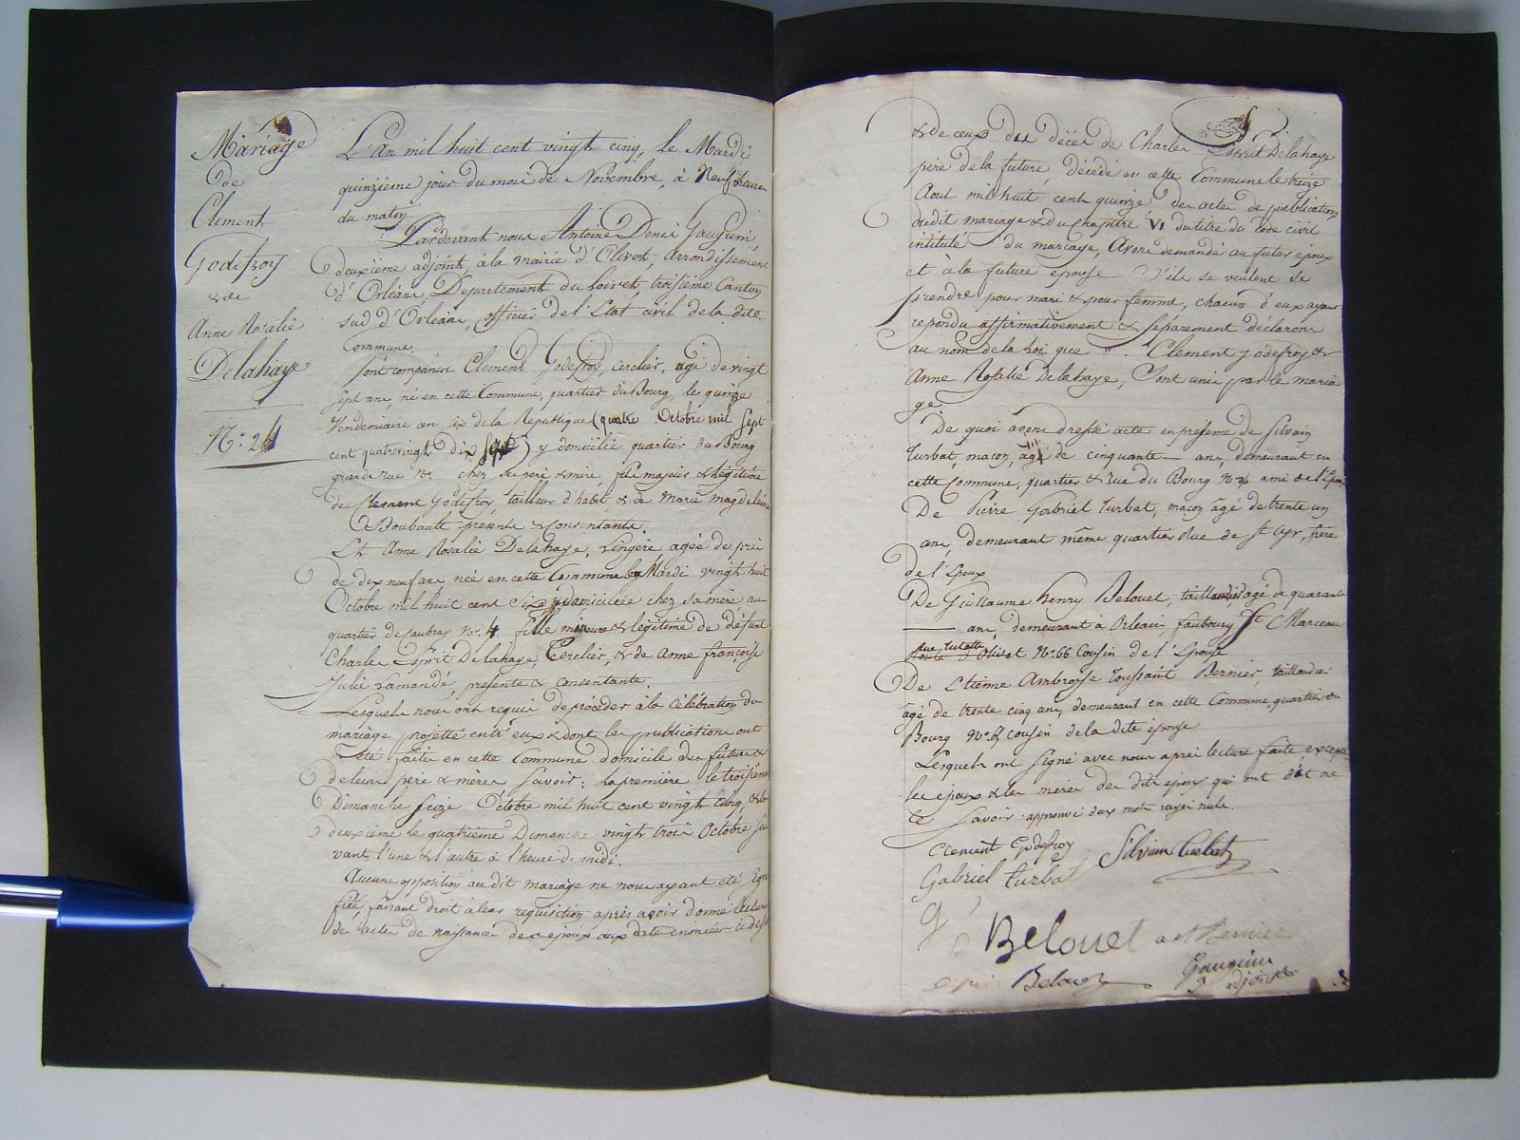 Mariage
de
Clement
Godefroy
& de
Anne Rosalie
Delahaye
N.° 24
L'an mil huit cent vingt cinq, le Mardi
quinzieme jour du mois de Novembre, à Neuf heures
du matin
Pardevant nous Antoine Denis Gauguin
deuxieme adjoint à la mairie d'Olivet, arrondissement
d'Orléans, Departement du loiret, troisieme Canton
sud d'Orléans, officier de l'Etat civil de la dite
Commune
sont comparus Clement Godefroy, cerclier, agé de vingt
sept ans né en cette Commune, quartier du Bourg, le quinze
Vendemiaire an six de la Republique (quatre Octobre mil sept
cent quatrevingt dix sept) y domicilié quartier du Bourg
grande rue N.° chez ses pere & mere, fils majeur & légitime
de Clement Godefroy, tailleur d'habit, & de Marie Magdeleine
Boubault presents & consentants.
Et Anne Rosalie Delahaye, Lingère, agée de près
de dix neuf ans née en cette Commune le Mardi vingt huit
Octobre mil huit cent six & domiciliée chez sa mère au
quartier de N.° 4, fille mineure & légitime de défunt
Charles Esprit Delahaye, Cerclier, & de Anne françoise
Julie Lamandé, presente & consentante.
Lesquels nous ont requis de procéder à la célébration du
mariage projetté entr'eux & dont les publications ont
été faites en cette Commune domicile des futurs &
de leurs père & mères savoir: la première le troisieme
Dimanche seize Octobre mil huit cent vingt cinq, & la
deuxieme le quatrieme Dimanche vingt trois Octobre sui
vant l'une & l'autre à l'heure de midi.
Aucune opposition au dit mariage ne nous ayant été signi
fiée, faisant droit à leur requisition après avoir donné lecture
de actes de naissance des epoux aux dates enoncées ci dessus
& de ceux des décès de Charles Esprit Delahaye
père de la future, décédé en cette Commune le treize
Aout mil huit cent quinze des actes de publications
dudit mariage & du Chapitre VI du titre du Code civil
intitulé du mariage, Avons demandé au futur epoux
et à la future epouse s'ils se veulent se
prendre pour mari & pour femme, chacun d'eux ayant
repondu affirmativement & séparement déclarons
au nom de la loi que Clement Godefroy &
Anne Rosalie Delahaye, sont unis par le maria
ge.
De quoi avons dressé acte en presence de Silvain
Turbat, maçon, agé de cinquante ans, demeurant en
cette Commune, quartier & rue du Bourg N.° ami de l'Epoux
De Pierre Gabriel Turbat, maçon agé de trente un
ans, demeurant même quartier Rue de St Cyr, frère
de l'Epoux
De Guillaume Henry Belouet, taillandier agé de quarante
ans, demeurant à Orleans, faubourg St Marceau
N.° 66 Cousin de l'Epouse
De Etienne Ambroise Toussaint Bernier, taillandier
agé de trente cinq ans, demeurant en cette Commune, quartier du
Bourg N.° cousin de la dite epouse
Lesquels ont signé avec nous après lecture faite, excepté
les epoux & les mères des dits epoux qui ont dit ne
le savoir. approuvé deux mots rayés nuls.
Clement Godefroy
Silvain Turbat
Gabriel turbat
g h Belouet
Bernier
Belouet
Gauguin
adjoint